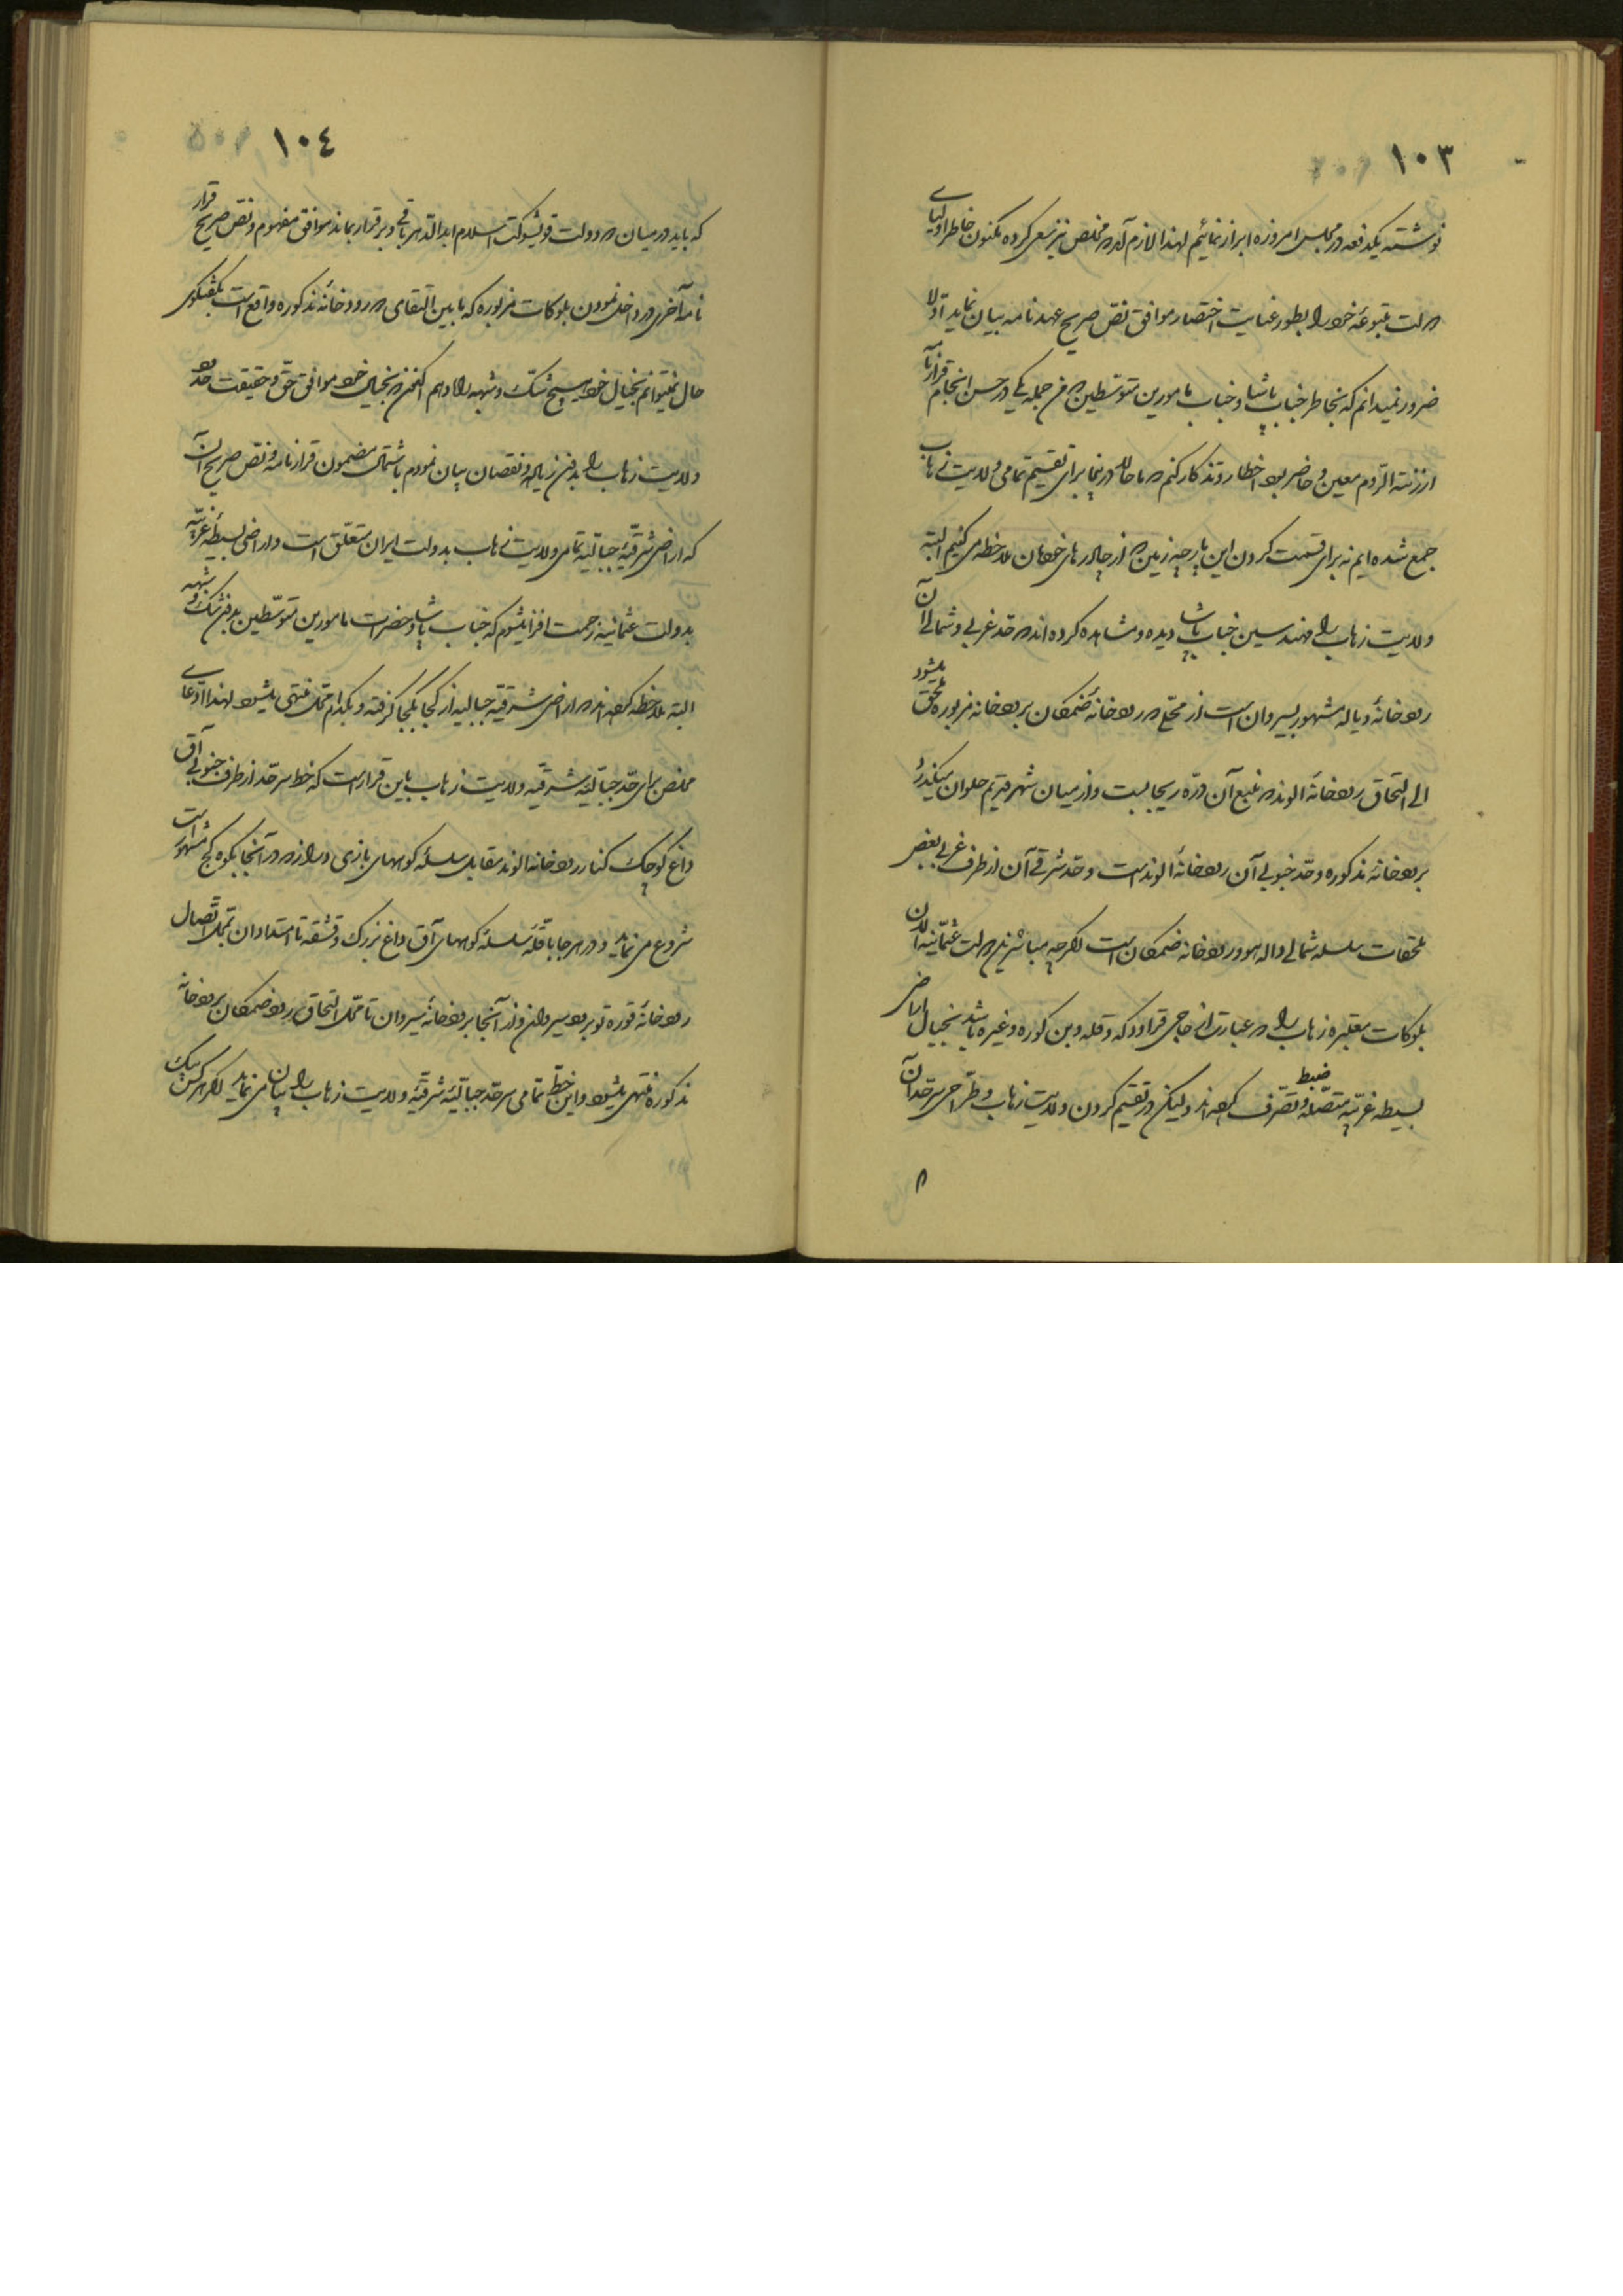 ١٠٣
نوشته یکدفعه در مجلس امروزه ابراز نمائیم لهذا لازم آمد که مخلص نیز سعی کرده مکنون خاطر اولیای
دولت متبوعهٔ خود را بطور غایت اختصار موافق نص صریح عهدنامه بیان نماید اولا
ضرور نمیدانم که بخاطر جناب پاشا و جناب مامورین متوسطین که فن جمله یکی در حسن انجام قرارنامهٔ
ارزنة الروم معین و حاضر بود اخطار و تذکار کنم که ما حالا در اینجا برای تقسیم تمامی ولایت زهاب
جمع شده ایم نه برای قسمت کردن این پارچه زمین که از چادرهای خودمان ملاحظه می کنیم البته
ولایت زهاب را مهندسین جناب پاشا دیده و مشاهده کرده اند که حد غربی و شمالی آن
رودخانهٔ دیاله مشهور بسیروان است از محلی که رودخانهٔ ضمکان برودخانه مزبوره ملحق میشود
الی التحاق رودخانهٔ الوند که منبع آن درّه ریجابست و از میان شهر قدیم حلوان میگذرد
برودخانهٔ مذکوره و حدّ جنوبی آن رودخانهٔ الوند است و حدّ شرقی آن از طرف غربی بعض
ملحقات سلسله شمالی دالهو و رودخانه ضمکان است اگرچه مباشرین دولت عثمانیه الان
بلوکات معتبره زهاب را که عبارت از حاجی قرا و دکه و قله و بن کوره و غیره باشد بخیال اراضی
بسیطه غربیه متصله ضبط و تصرف کرده اند ولیکن در تقسیم کردن ولایت زهاب و طراحی سرحد آن
١٠٤
که باید در میان دو دولت قویشوکت اسلام ابد الدهر باقی و برقرار بماند موافق مفهوم و نص صریح قرار
نامهٔ آخری در داخل نمودن بلوکات مزبوره که مابین التقای دو رودخانهٔ مذکوره واقع است بگفتگوی
حال نمیتوانم بخیال خود هیچ شک و شبهه راه دهم اکنون که بخیال خود موافق حق و حقیقت حدود
ولایت زهاب را بدون زیاده و نقصان بیان نمودم باشتمال مضمون قرارنامه و نص صریح آن
که اراضی شرقیهٔ جبالیه تمامی ولایت زهاب بدولت ایران متعلق است و اراضی بسیطهٔ غربیه
بدولت عثمانیه زحمت افزا میشوم که جناب پاشا و حضرات مامورین متوسطین بدون شک و شبهه
البته ملاحظه کرده اند که اراضی شرقیه جبالیه از کجا بکجا گرفته و بکدام محل منتهی میشود لهذا ادعای
مخلص برای حد جبالیه شرقیه ولایت زهاب باین قرار است که خط سرحد از طرف جنوبی آق
داغ کوچک کنار رودخانه الوند مقابل سلسلهٔ کوههای بازی دراز که در آنجا بکوه کج مشهور است
شروع می نماید و در هر جا با قلهٔ سلسلهٔ کوههای آق داغ بزرک و قشقه تا امتداد آن بمحل اتصال
رودخانهٔ قوره تو برود سیروان و از آنجا برودخانهٔ سیروان تا محل التحاق رود ضمکان برودخانه
مذکوره منتهی میشود و این خط تمامی سرحد جبالیهٔ شرقیهٔ ولایت زهاب را بیان می نماید اگر هر کس یک